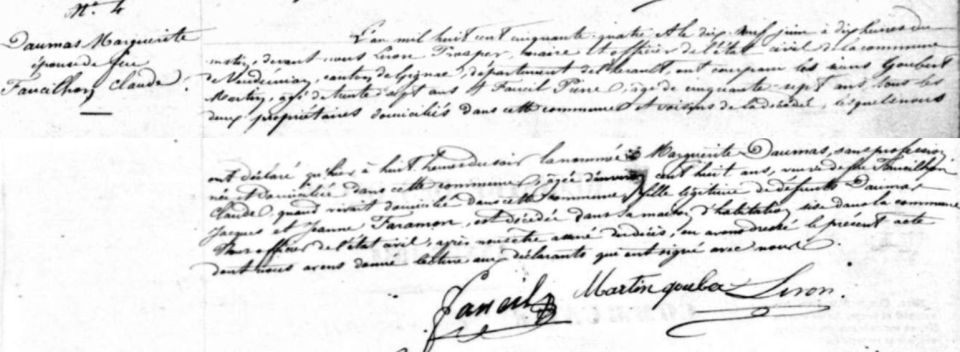 N° 4
Daumas Marguerite
épouse de feu
Faucilhon Claude.
L'an mil huit cent cinquante quatre et le dix neuf juin à dix heures du
matin, devant nous Liron Prosper, maire et officier de l'état civil de la commune
de canton de Gignac, département de l'hérault, ont comparu les sieurs Goubert
Martin, agé de trente sept ans et Fauvil Pierre, agé de cinquante sept ans, tous les
deux propriétaires domiciliés dans cette commune et voisins de la décédée, lesquels nous
ont déclaré qu'hier à huit heures du soir la nommée Marguerite Daumas, sans profession,
née et domiciliée dans cette commune, agée huit ans, veuve de feu Faucilhon
Claude, quand vivait domicilié dans cette commune, fille légitime de défunts Daumas
Jacques et Jeanne Faramon, est décédée dans sa maison d'habitation, sise dans la commune
officier de l'état civil, après nous être assuré du décès, en avons dressé le présent acte
dont nous avons donné lecture aux déclarants qui ont signé avec nous.
Fauvil Martin goubert Liron